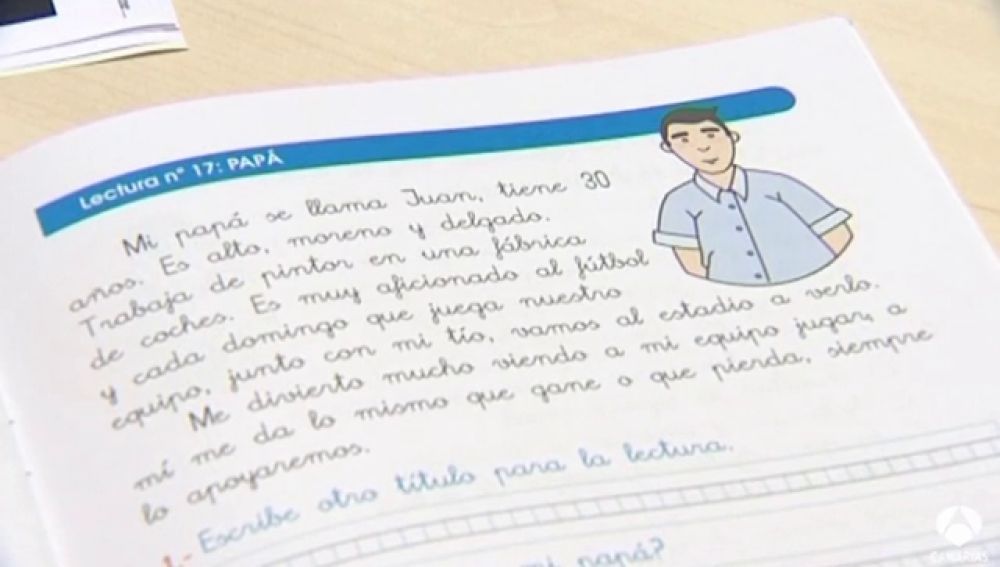 Lectura nº 17: PAPÁ
Mi papá se llama Juan, tiene 30
años. Es alto, moreno y delgado.
Trabaja de pintor en una fábrica
de coches. Es muy aficionado al fútbol
y cada domingo que juega nuestro
equipo, junto con mi tío, vamos al estadio a verlo.
Me divierto mucho viendo a mi equipo jugar, a
mí me da lo mismo que gane o que pierda, siempre
lo apoyaremos.
1.- Escribe otro título para la lectura.
mi papá?
CANARIAS